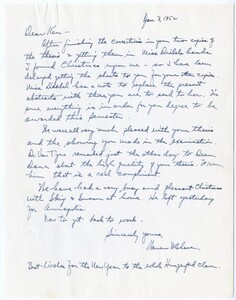 Jan 7, 1952
Dear Ken —
After finishing the corrections in your two copies of
the thesis & getting them in Miss hands
I found Christmas upon me — so I have been
delayed getting the sheets to you for your other copies.
Miss has a note to replace the present
abstracts with those you are to send to her. I'm
sure everything is in order for your degree to be
awarded this semester.
We were all very much pleased with your thesis
and the showing you made in the examination.
Dr. Van Tyne remarked just the other day to Dean
about the high quality of your thesis. From
him that is a real compliment.
We have had a very busy and pleasant Christmas
with & Susan at home. He left yesterday
for Annapolis.
Now to get back to work.
Sincerely yours,
Best wishes for the New Year to the whole clan.